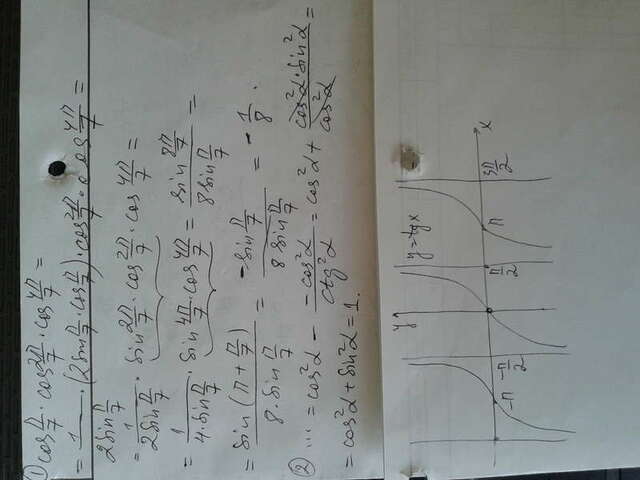 ① cos π/7 · cos 2π/7 · cos 4π/7 =
= 1/(2sin π/7) · (2sin π/7 · cos π/7) · cos 2π/7 · cos 4π/7 =
= 1/(2sin π/7) · sin 2π/7 · cos 2π/7 · cos 4π/7 =
= 1/(4·sin π/7) · sin 4π/7 · cos 4π/7 = sin 8π/7 / (8sin π/7) =
= sin(π + π/7) / (8·sin π/7) = -sin π/7 / (8sin π/7) = -1/8.
② ... = cos²α - (-cos²α)/(ctg²α) = cos²α + (cos²α·sin²α)/(cos²α) =
= cos²α + sin²α = 1.
y
y=tgx
-π
-π/2
π/2
π
3π/2
x